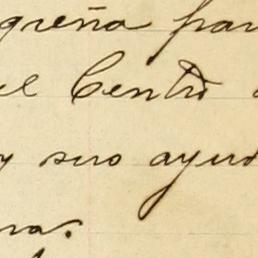 queña par
el Centro
y sus ayud
na.